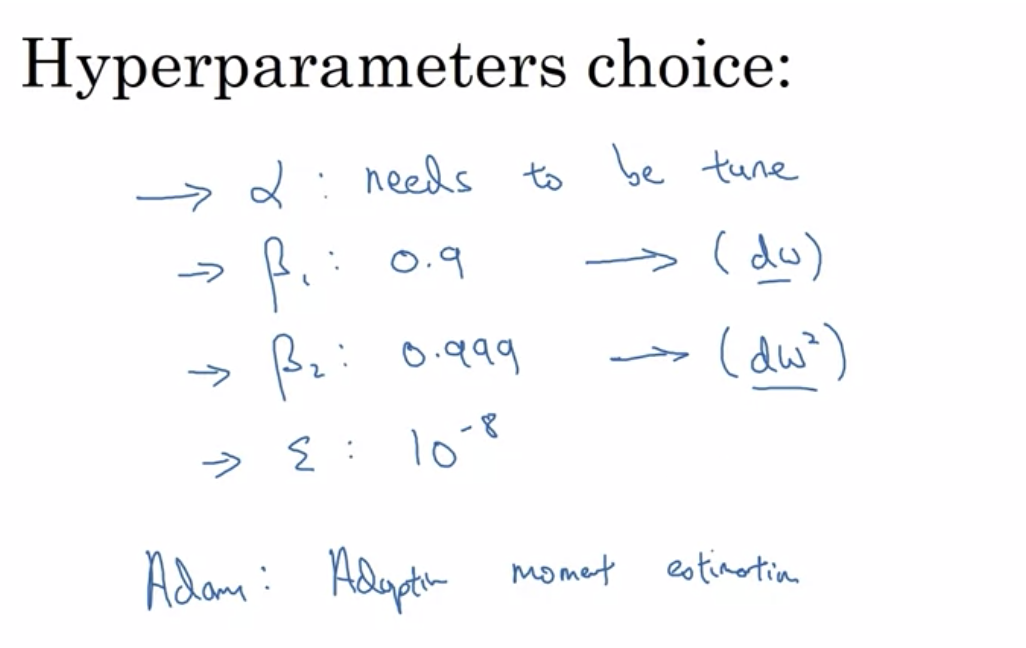 Hyperparameters choice:
→ α : needs to be tune
→ β₁ : 0.9 → (dw)
→ β₂ : 0.999 → (dw²)
→ ε : 10⁻⁸
Adam: Adaptin moment estimation